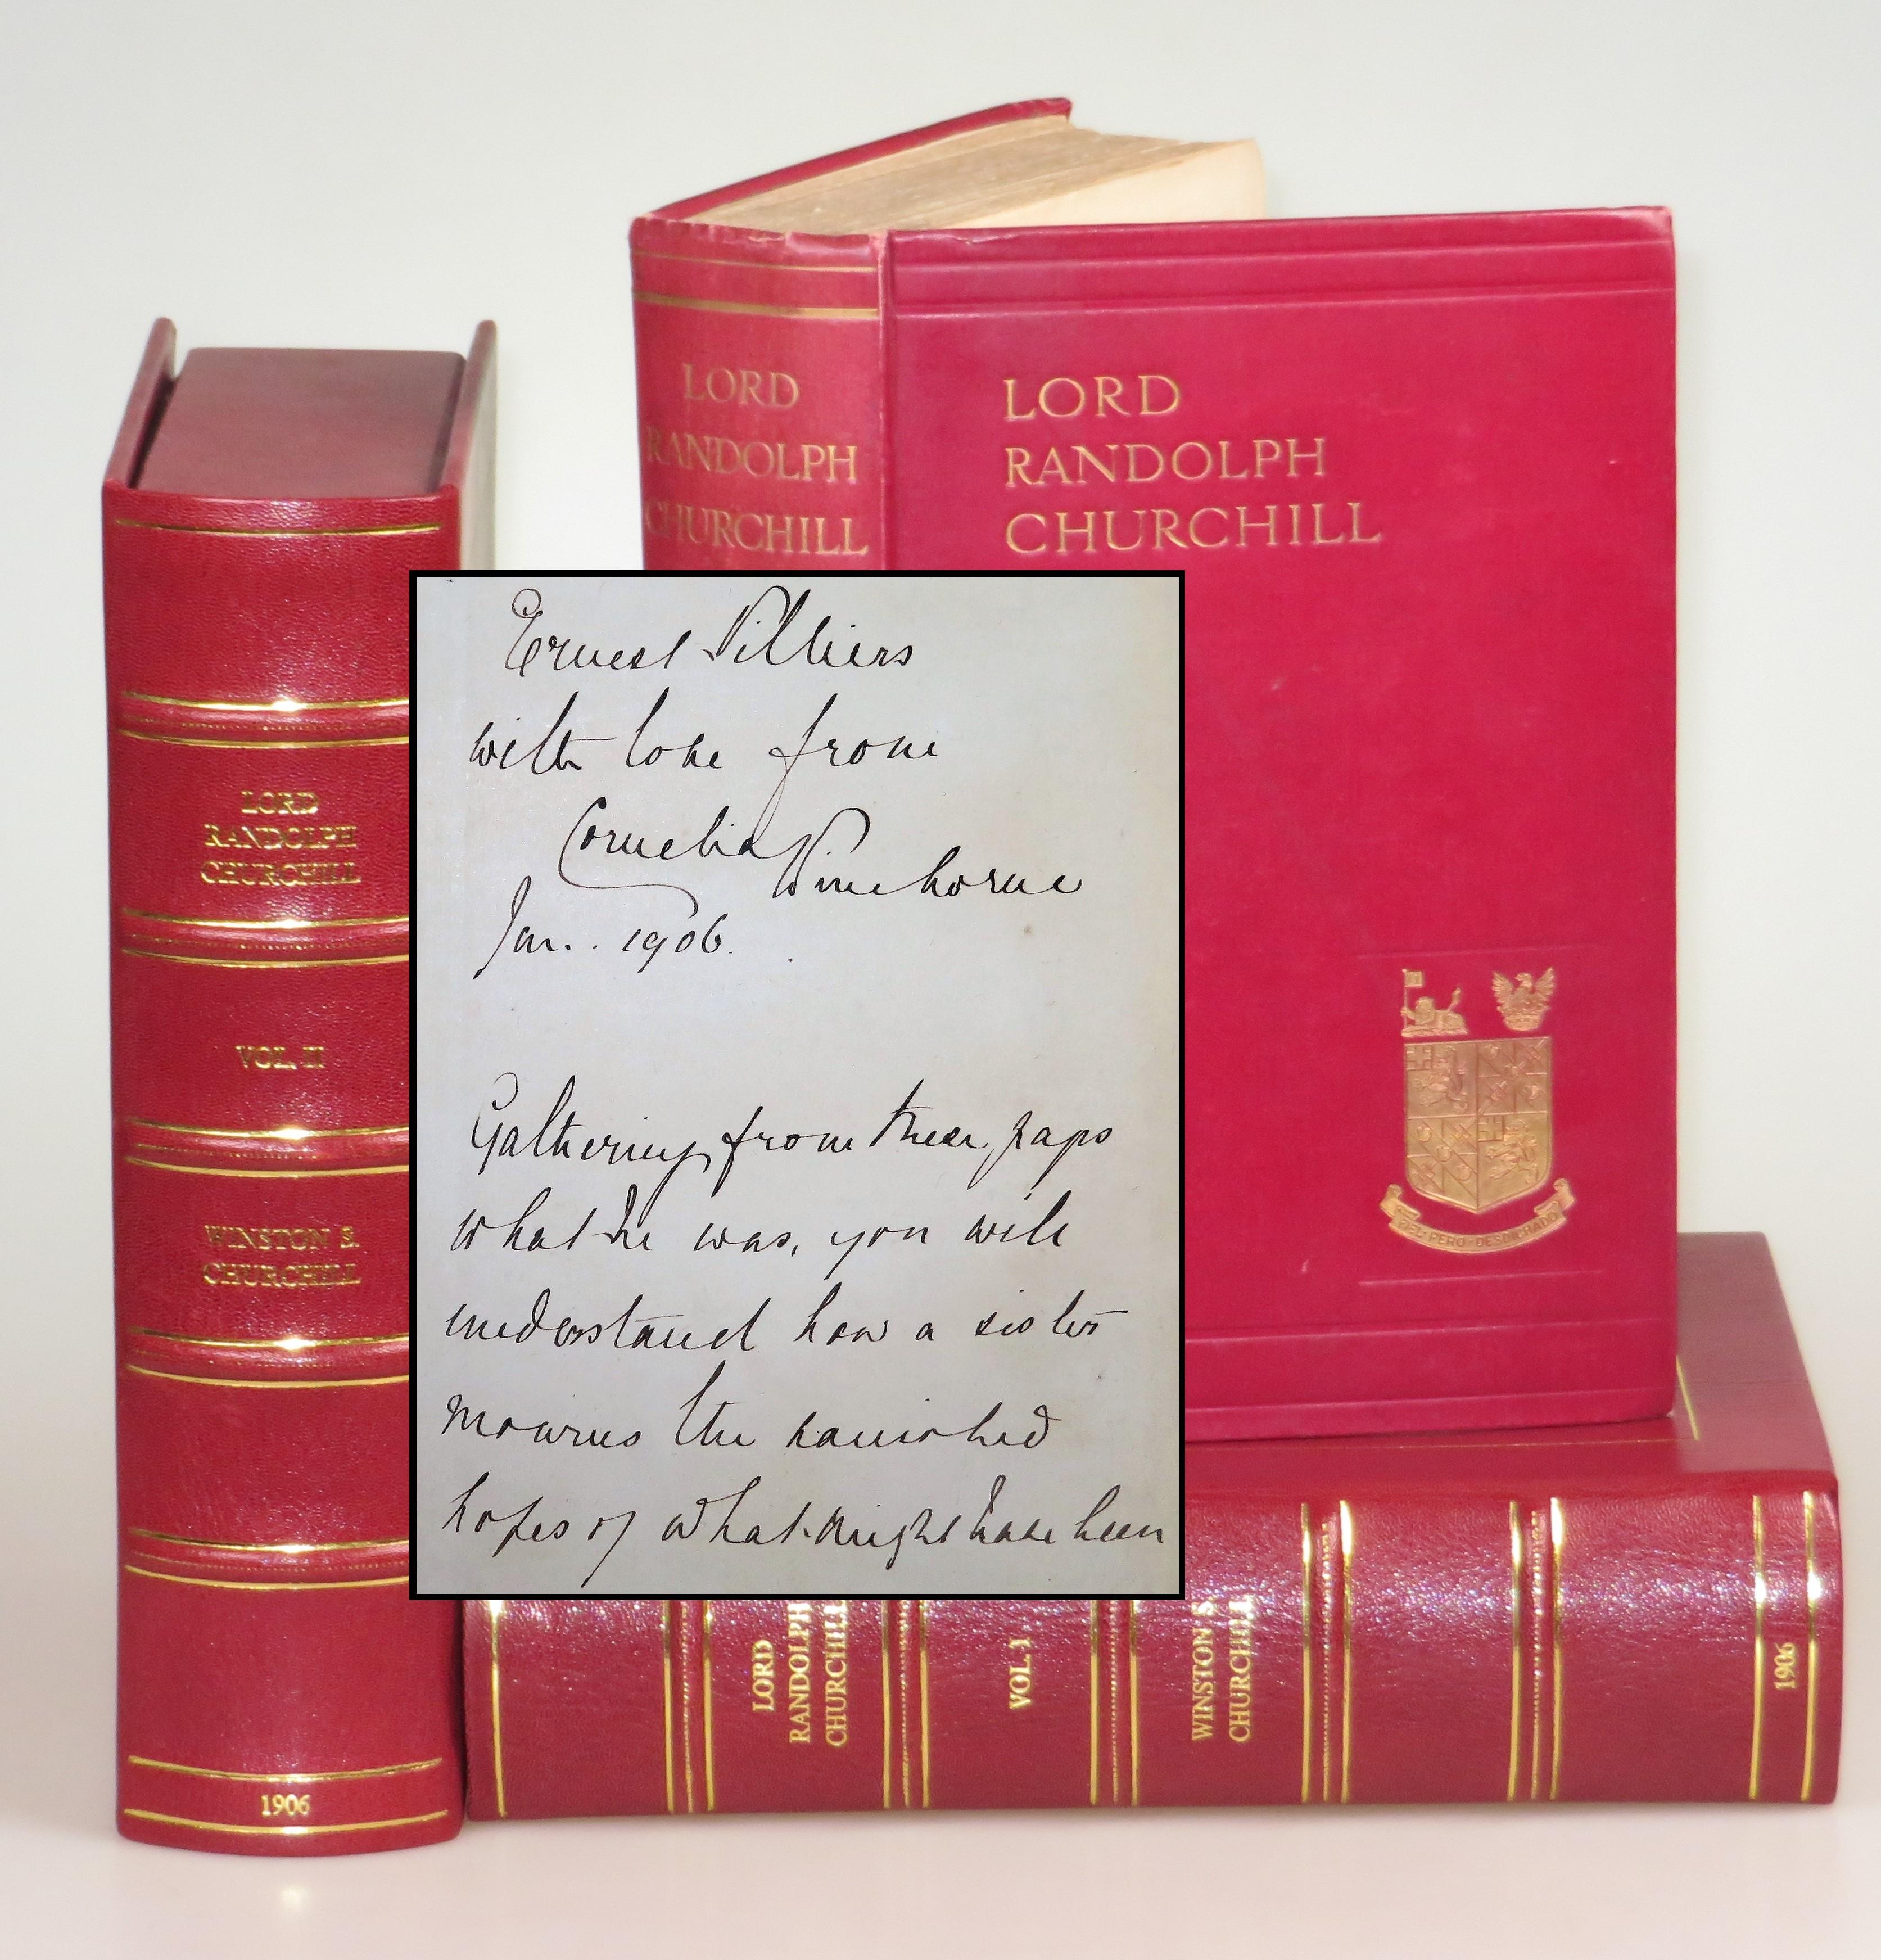 LORD
RANDOLPH
CHURCHILL
LORD
RANDOLPH
CHURCHILL
LORD
RANDOLPH
CHURCHILL
VOL. II
WINSTON S.
CHURCHILL
1906
Ernest Villiers
with love from
Cornelia Wimborne
Jan. 1906.
Gathering from these pages
what he was, you will
understand how a sister
mourns the vanished
hopes of what might have been
FIEL PERO DESDICHADO
LORD
RANDOLPH
CHURCHILL
VOL. I
WINSTON S.
CHURCHILL
1906